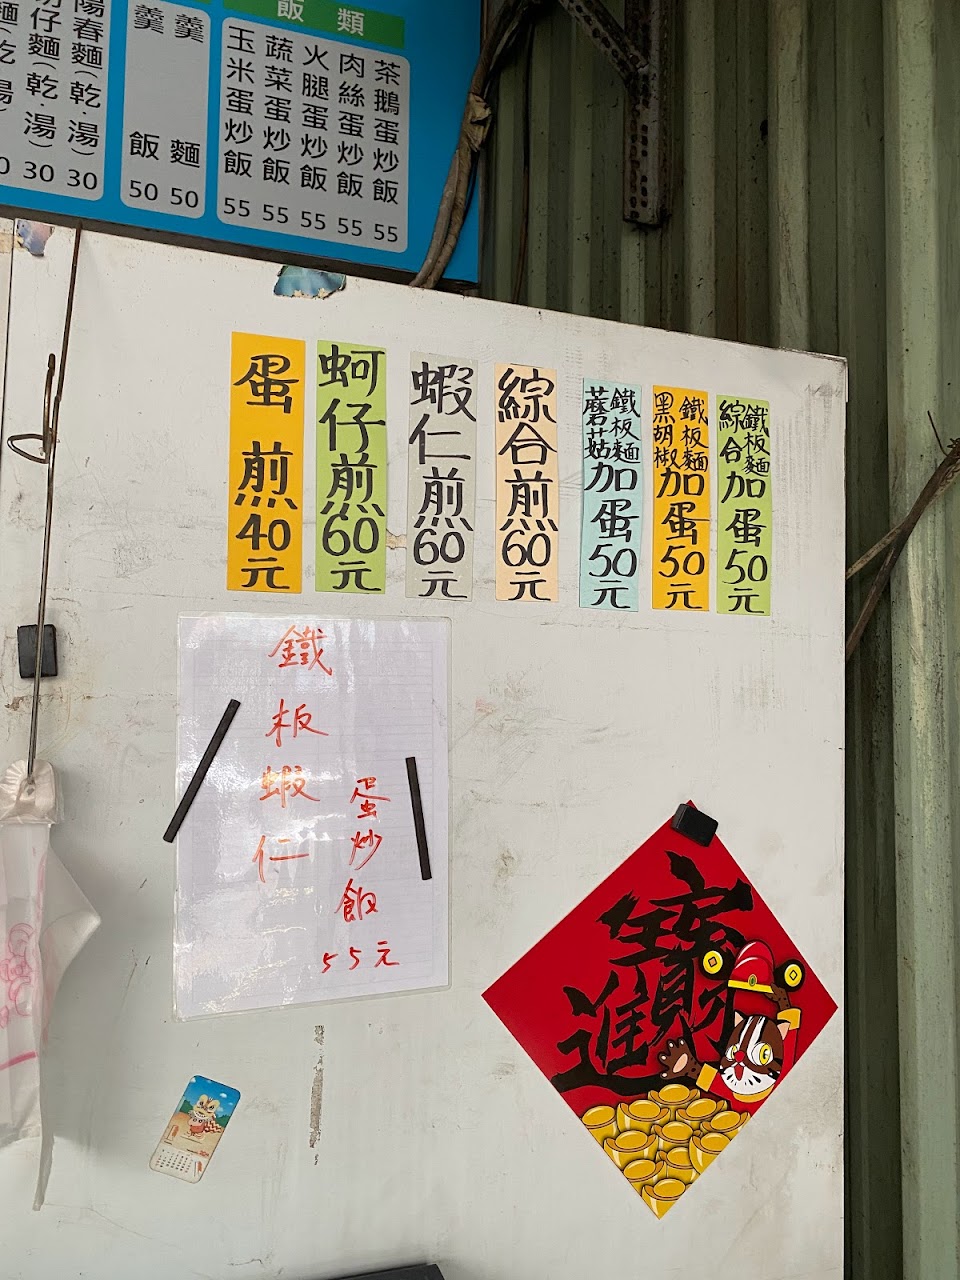 飯類
茶鵝蛋炒飯 55
肉絲蛋炒飯 55
火腿蛋炒飯 55
蔬菜蛋炒飯 55
玉米蛋炒飯 55
羹麵 50
羹飯 50
陽春麵(乾.湯) 30
仔麵(乾.湯) 30
蛋煎40元
蚵仔煎60元
蝦仁煎60元
綜合煎60元
鐵板麵蘑菇加蛋50元
鐵板麵黑胡椒加蛋50元
鐵板麵綜合加蛋50元
鐵板蝦仁
蛋炒飯
55元
招財進寶